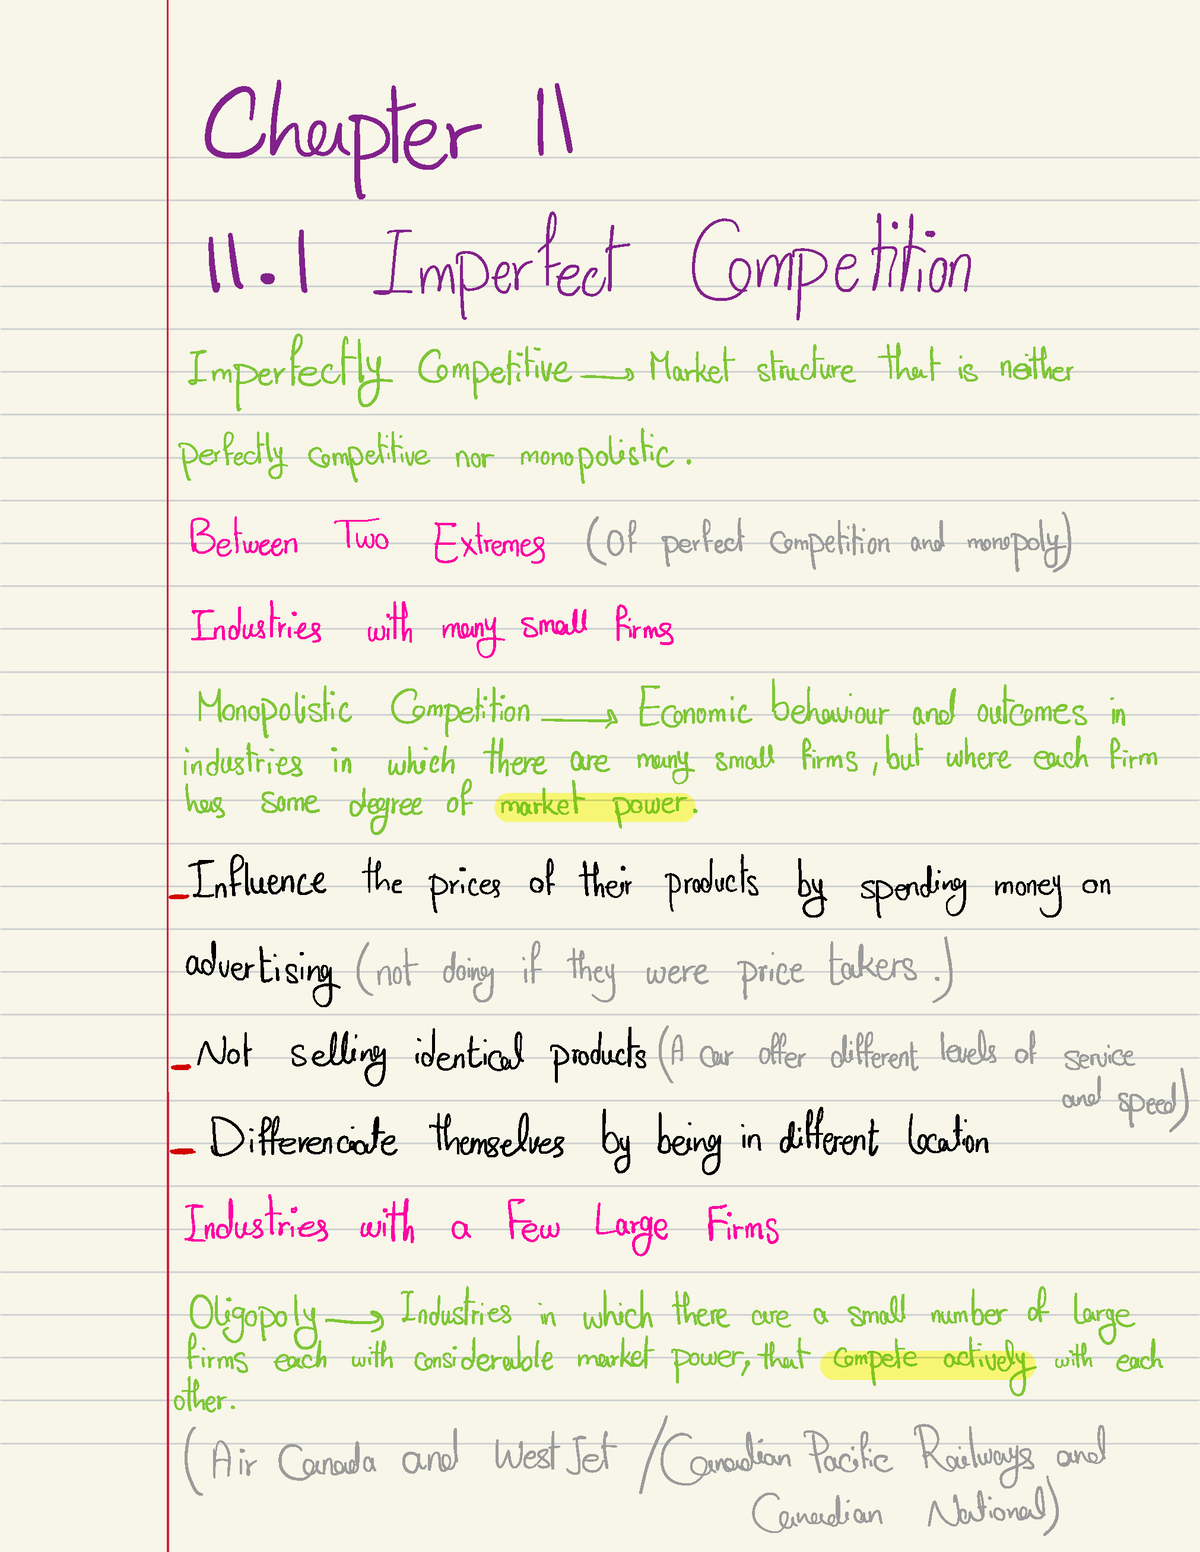 Chapter 11
11.1 Imperfect Competition
Imperfectly Competitive → Market structure that is neither
perfectly competitive nor monopolistic.
Between Two Extremes (Of perfect competition and monopoly)
Industries with many small firms
Monopolistic Competition → Economic behaviour and outcomes in
industries in which there are many small firms, but where each firm
has some degree of market power.
- Influence the prices of their products by spending money on
advertising (not doing if they were price takers.)
- Not selling identical products (A car offer different levels of service
and speed)
- Differenciate themselves by being in different location
Industries with a Few Large Firms
Oligopoly → Industries in which there are a small number of large
firms each with considerable market power, that compete actively with each
other.
(Air Canada and West Jet / Canadian Pacific Railways and
Canadian National)